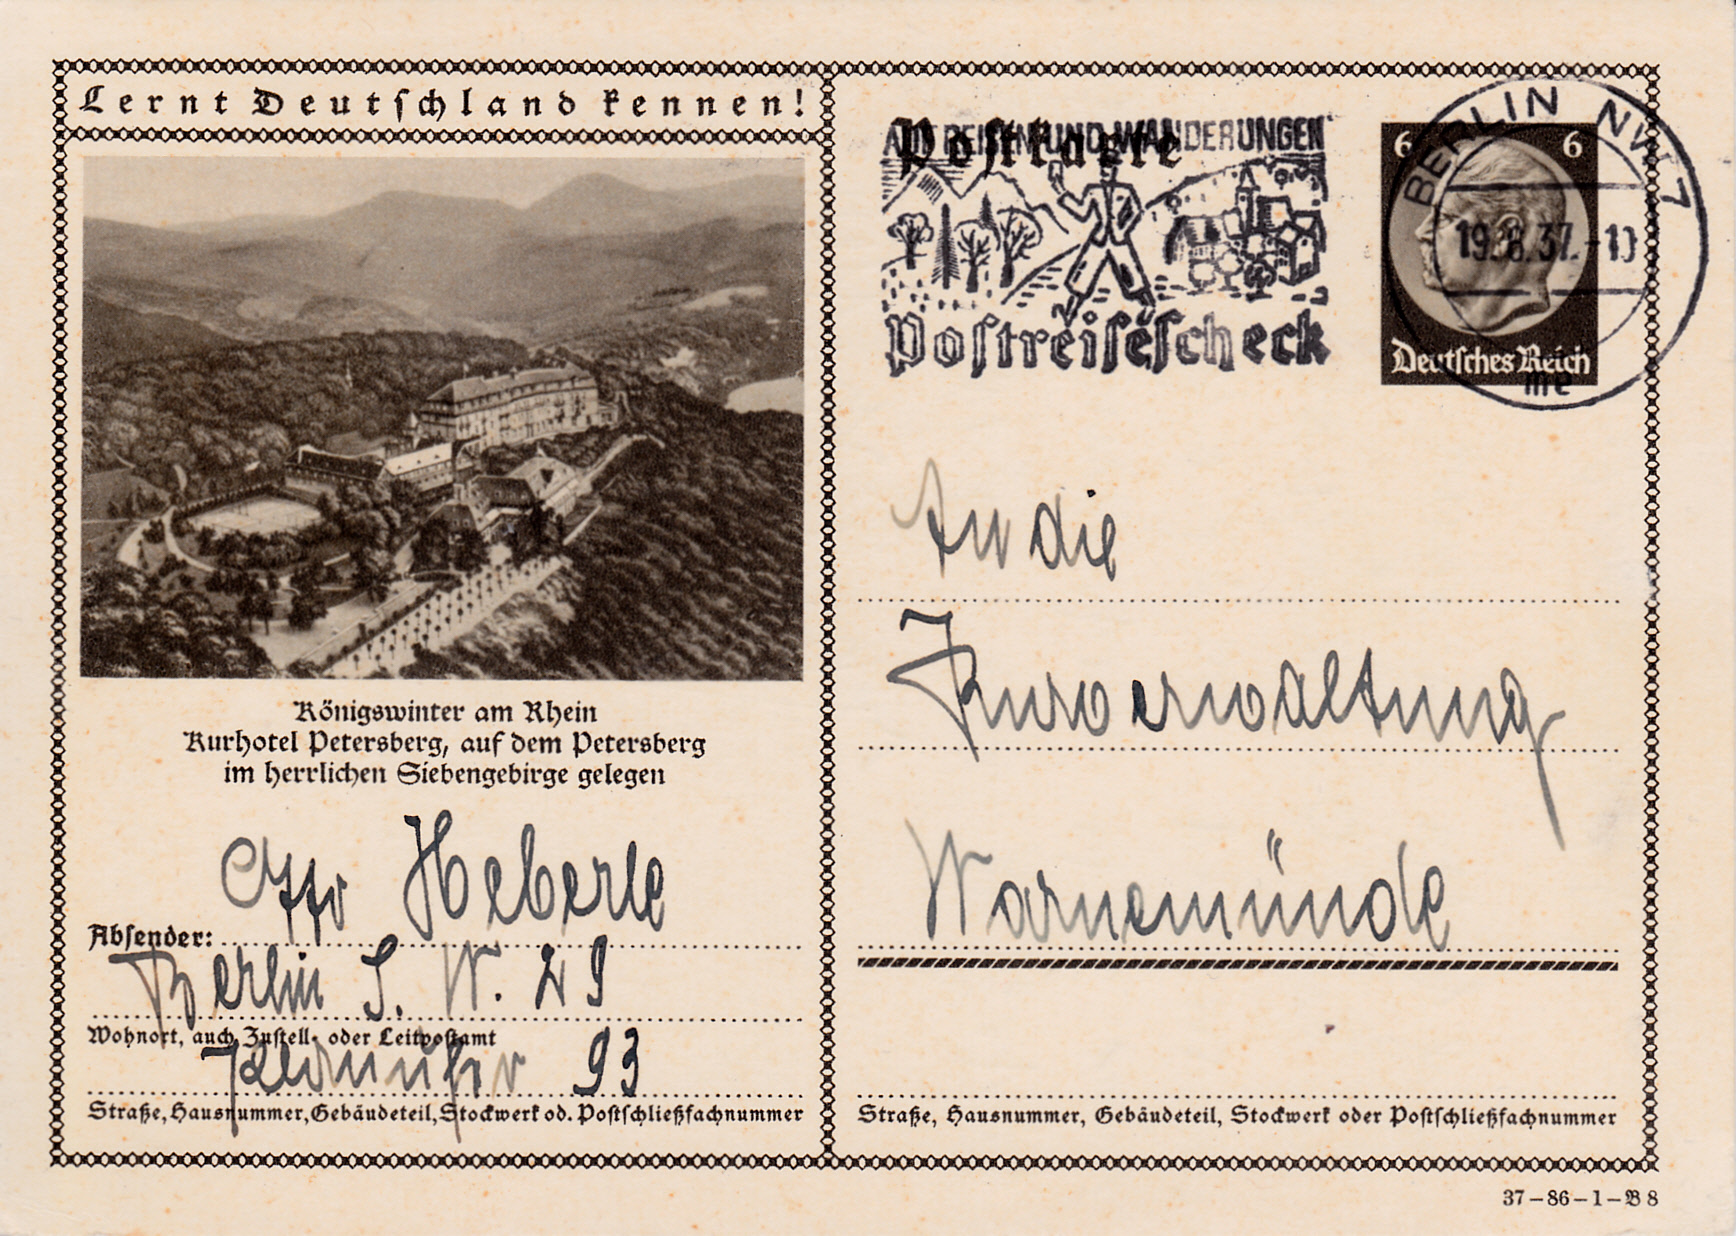 Lernt Deutschland kennen!
Königswinter am Rhein
Kurhotel Petersberg, auf dem Petersberg
im herrlichen Siebengebirge gelegen
Otto Heberle
Absender:
Berlin S. W. 29
Wohnort, auch Zustell- oder Leitpostamt
93
Straße, Hausnummer, Gebäudeteil, Stockwerk od. Postschließfachnummer
Postkarte
AUF REISEN UND WANDERUNGEN
Postreisescheck
6 6
Deutsches Reich
BERLIN NW 7
19.8.37.-10
me
An die
Kurverwaltung
Warnemünde
Straße, Hausnummer, Gebäudeteil, Stockwerk oder Postschließfachnummer
37-86-1-B 8